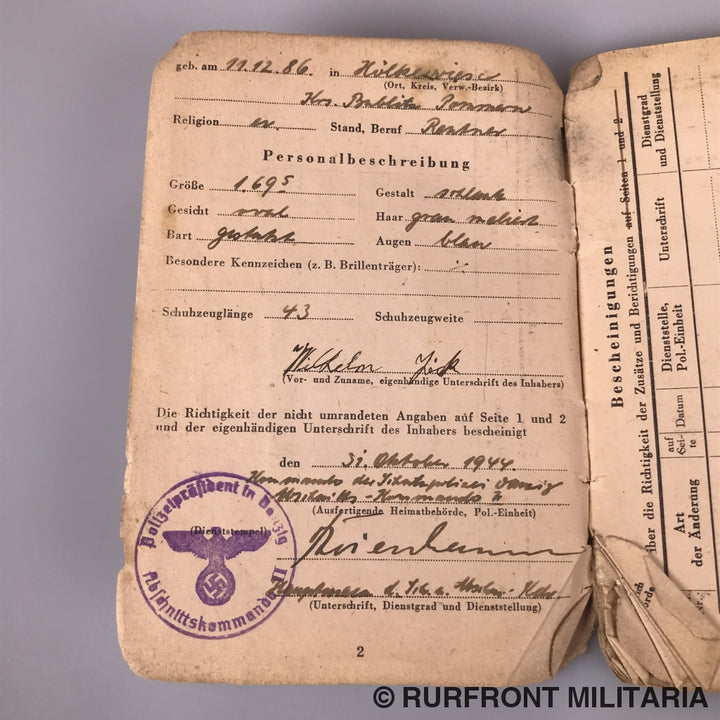 geb. am 11.12.86. in
(Ort, Kreis, Verw.-Bezirk)
Krs. Bublitz Pommern
Religion ev. Stand, Beruf Rentner
Personalbeschreibung
Größe 1,69⁵ Gestalt schlank
Gesicht oval Haar grau meliert
Bart gestutzt Augen blau
Besondere Kennzeichen (z. B. Brillenträger): ·/.
Schuhzeuglänge 43 Schuhzeugweite
Wilhelm
(Vor- und Zuname, eigenhändige Unterschrift des Inhabers)
Die Richtigkeit der nicht umrandeten Angaben auf Seite 1 und 2
und der eigenhändigen Unterschrift des Inhabers bescheinigt
den 31. Oktober 1944
Kommando der Schutzpolizei Danzig
Abschnitts-Kommando II
(Ausfertigende Heimatbehörde, Pol.-Einheit)
(Dienststempel)
Polizeipräsident in Danzig
Abschnittskommando II
(Unterschrift, Dienstgrad und Dienststellung)
2
Bescheinigungen
über die Richtigkeit der Zusätze und Berichtigungen auf Seiten 1 und 2
Art
der Änderung
auf
Sei-
te
Datum
Dienststelle,
Pol.-Einheit
Unterschrift
Dienstgrad
und Dienststellung
© RURFRONT MILITARIA